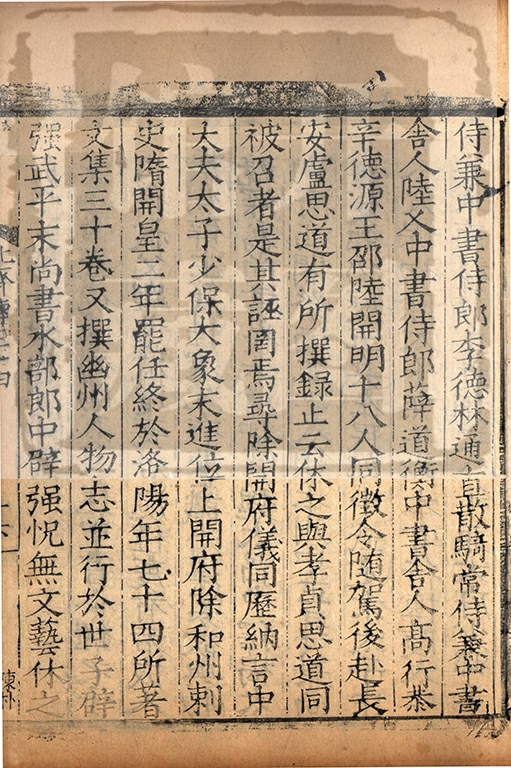 侍兼中書侍郎李德林通直散騎常侍兼中書
舍人陸乂中書侍郎薛道衡中書舍人髙行恭
辛德源王邵陸開明十八人同徵令随駕後赴長
安盧思道有所撰録止云休之與孝貞思道同
被召者是其誣罔焉尋除開府儀同歷納言中
太夫太子少保大象末進位上開府除和州刺
史隋開皇二年罷任終於洛陽年七十四所著
文集三十卷又撰幽州人物志並行於世子辟
强武平末尚書水部郎中辟强恱無文藝休之